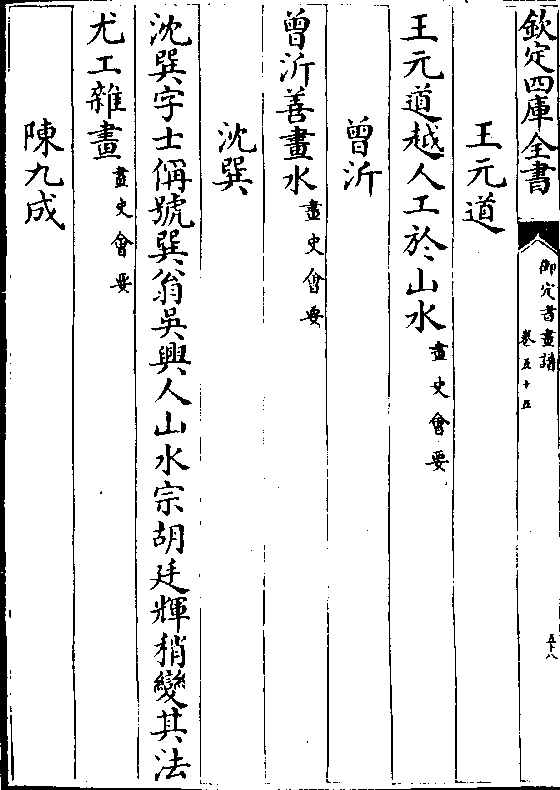 欽定四庫全書
御定書畫譜
卷五十五
五十八
王元道
王元道越人工於山水畫史會要
曾沂
曾沂善畫水畫史會要
沈巽
沈巽字士偁號巽翁吳興人山水宗胡廷輝稍變其法
尤工雜畫畫史會要
陳九成